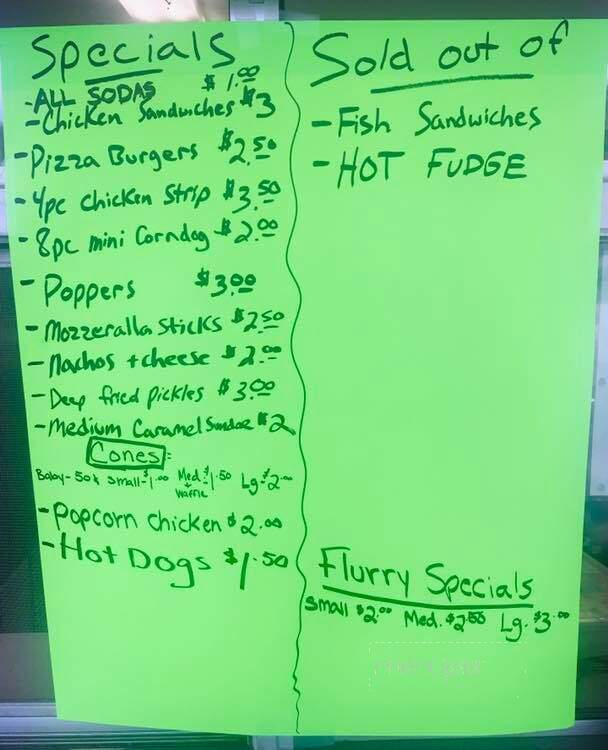 Specials
-ALL SODAS $1.00
-Chicken Sandwiches $3
-Pizza Burgers $2.50
-4pc chicken strip $3.50
-8pc mini Corndog $2.00
-Poppers $3.00
-Mozzeralla Sticks $2.50
-Nachos + cheese $2.00
-Deep fried pickles $3.00
-Medium Caramel Sundae $2
Cones:
Baby-50¢ Small-$1.00 Med.+ Waffle $1.50 Lg.$2.00
-Popcorn chicken $2.00
-Hot Dogs $1.50
Sold out of
-Fish Sandwiches
-HOT FUDGE
Flurry Specials
Small $2.00 Med. $2.50 Lg. $3.00